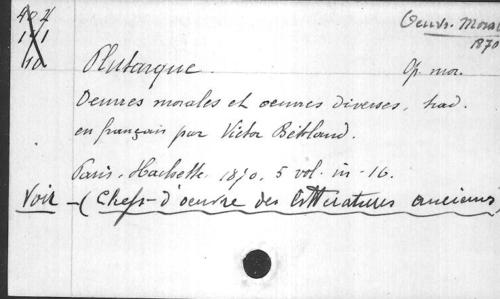 402
Oeuvr. Moral
141
1870
10
Plutarque. Op. mor.
Oeuvres morales et oeuvres diverses, trad.
en français par Victor Bétoland.
Paris, Hachette. 1870. 5 vol. in-16.
Voir - (Chefs-d'oeuvre des littératures anciennes